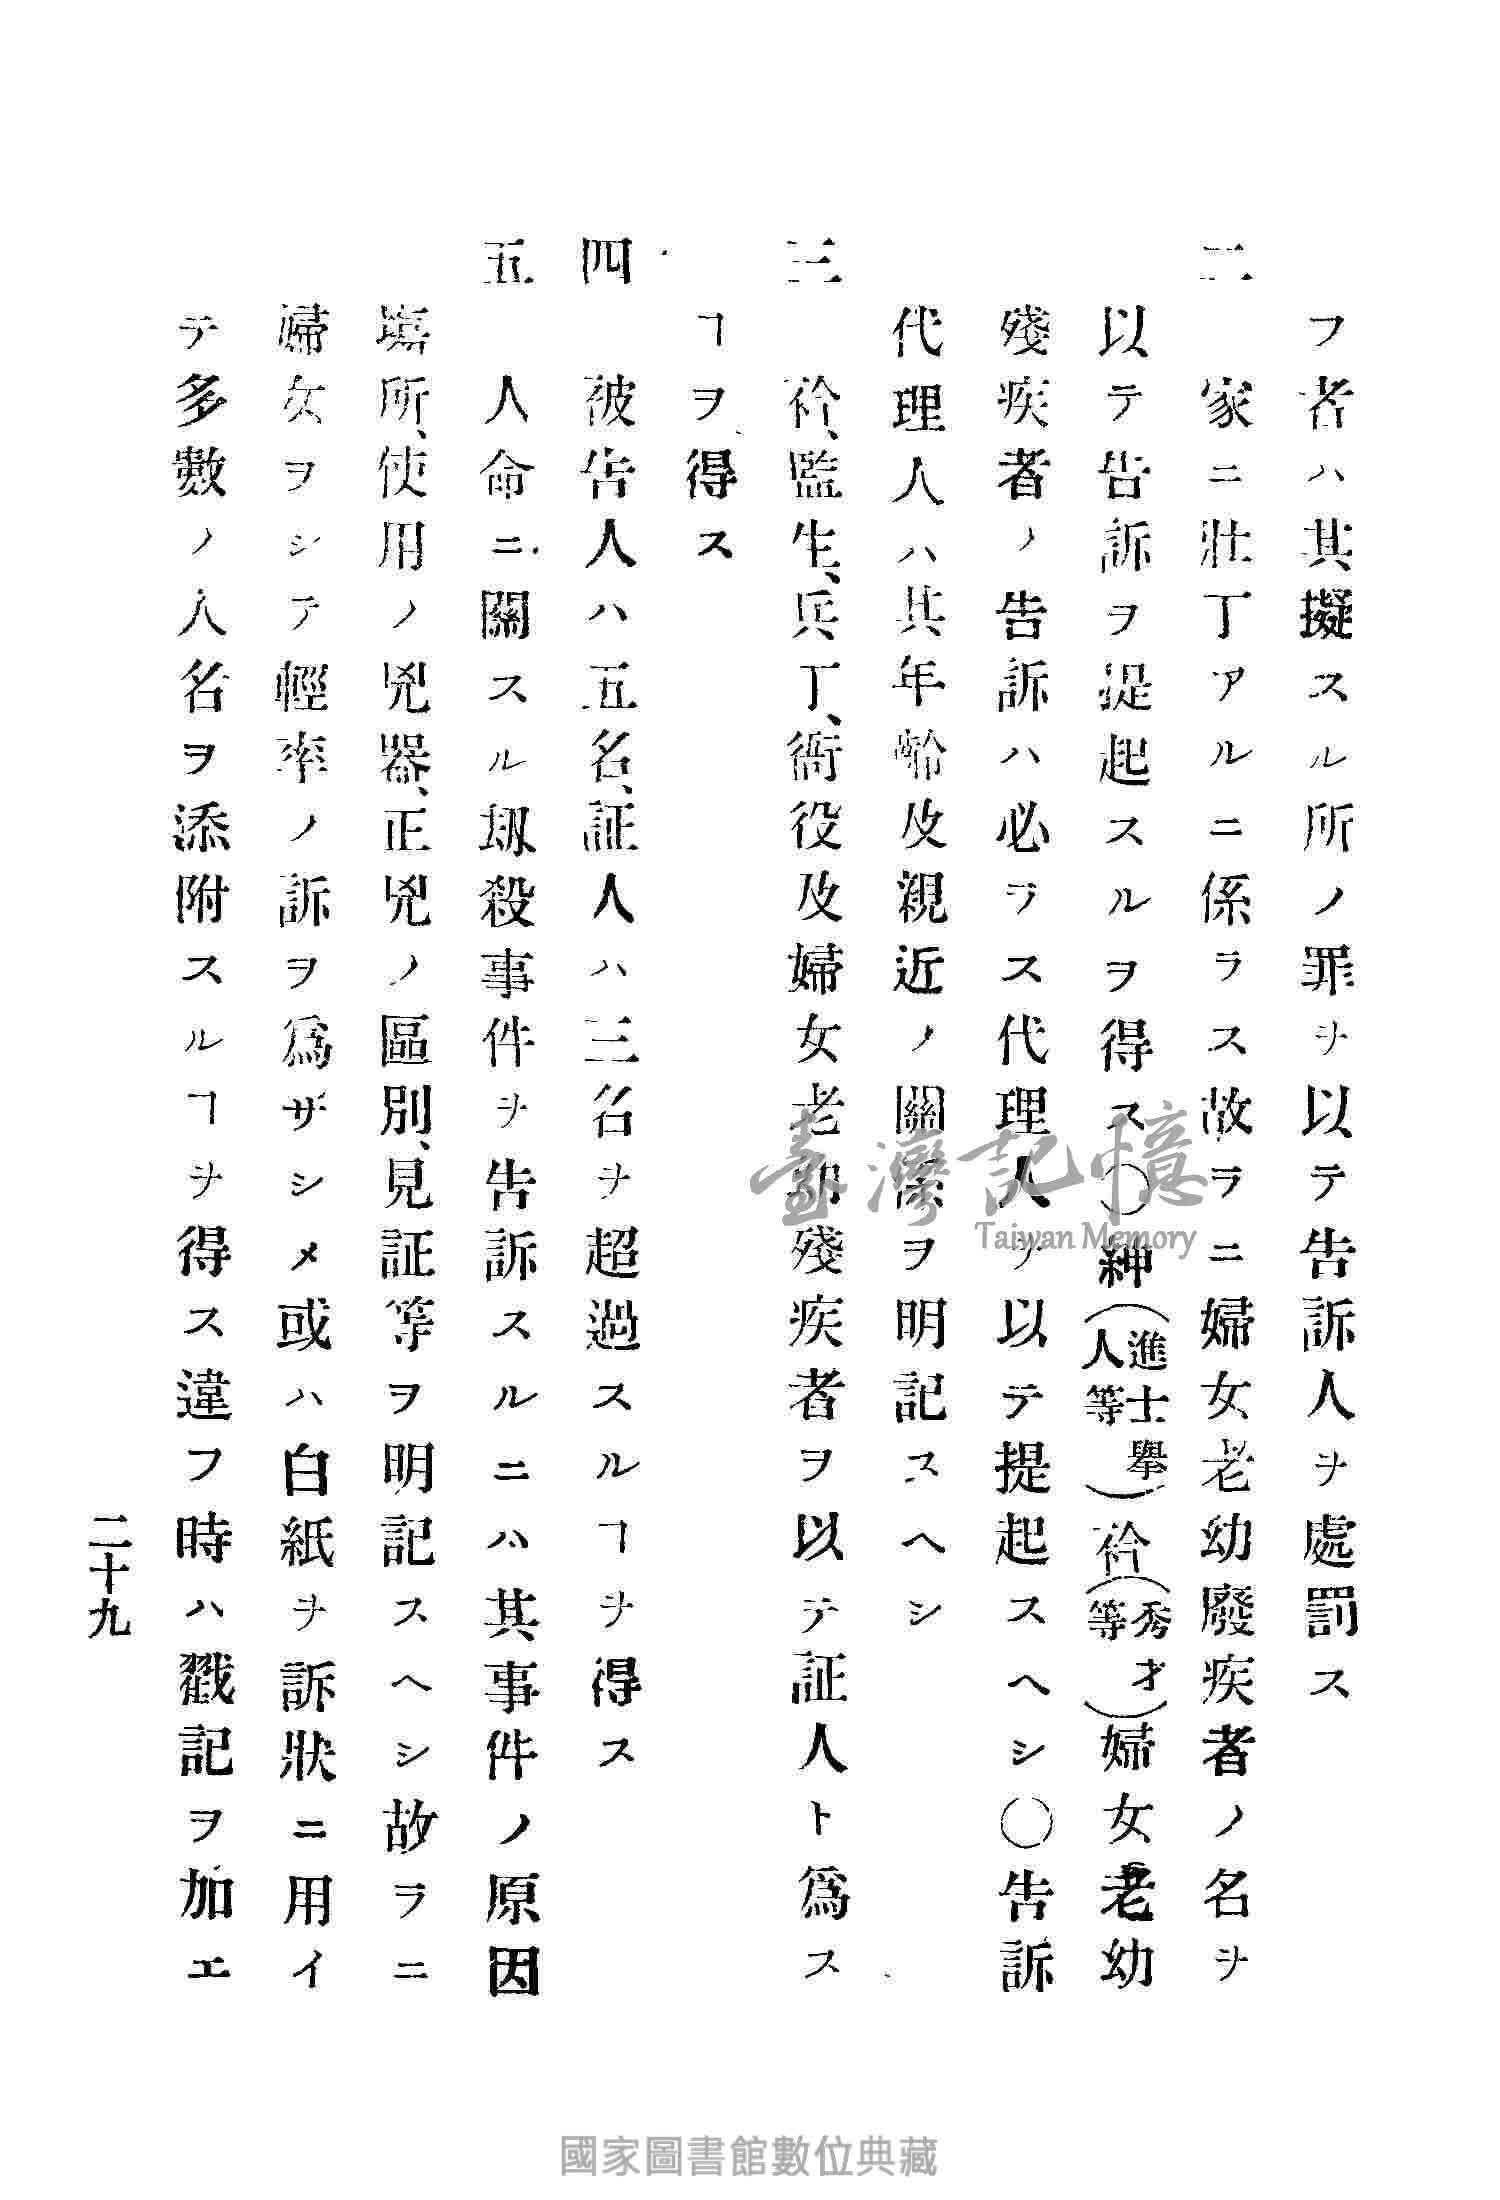 フ者ハ其擬スル所ノ罪ヲ以テ告訴人ヲ處罰ス
二 家ニ壯丁アルニ係ラス故ラニ婦女老幼廢疾者ノ名ヲ
以テ告訴ヲ提起スルヲ得ス〇紳(進士擧人等)衿(秀才等)婦女老幼
殘疾者ノ告訴ハ必ラス代理人ヲ以テ提起スヘシ〇告訴
代理人ハ其年齡及親近ノ關係ヲ明記スヘシ
三 衿、監生、兵丁、衙役及婦女老幼殘疾者ヲ以テ証人ト爲ス
ヿヲ得ス
四 被告人ハ五名、証人ハ三名ヲ超過スルヿヲ得ス
五 人命ニ關スル刼殺事件ヲ告訴スルニハ其事件ノ原因
塲所、使用ノ兇器、正兇ノ區別、見証等ヲ明記スヘシ故ラニ
婦女ヲシテ輕率ノ訴ヲ爲ザシメ或ハ白紙ヲ訴狀ニ用イ
テ多數ノ人名ヲ添附スルヿヲ得ス違フ時ハ戳記ヲ加エ
二十九
臺灣記憶
Taiwan Memory
國家圖書館數位典藏